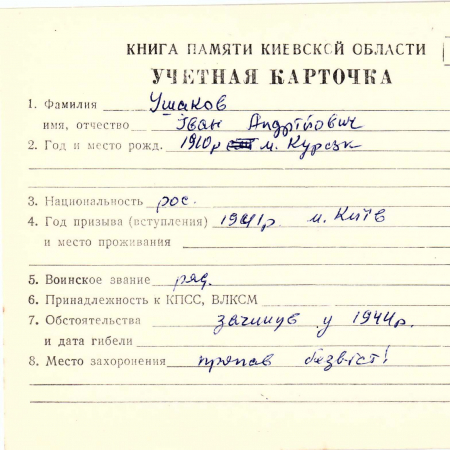 КНИГА ПАМЯТИ КИЕВСКОЙ ОБЛАСТИ
УЧЕТНАЯ КАРТОЧКА
1. Фамилия Ушаков
имя, отчество Іван Андрійович
2. Год и место рожд. 1910р м. Курськ
3. Национальность рос.
4. Год призыва (вступления) 1941р. м. Київ
и место проживания
5. Воинское звание ряд.
6. Принадлежность к КПСС, ВЛКСМ
7. Обстоятельства загинув у 1944р.
и дата гибели
8. Место захоронения пропав безвіст!